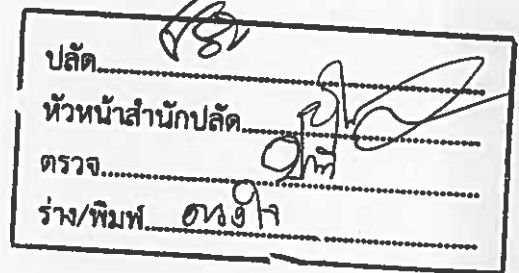 ปลัด
หัวหน้าสำนักปลัด
ตรวจ
ร่าง/พิมพ์ ดวงใจ